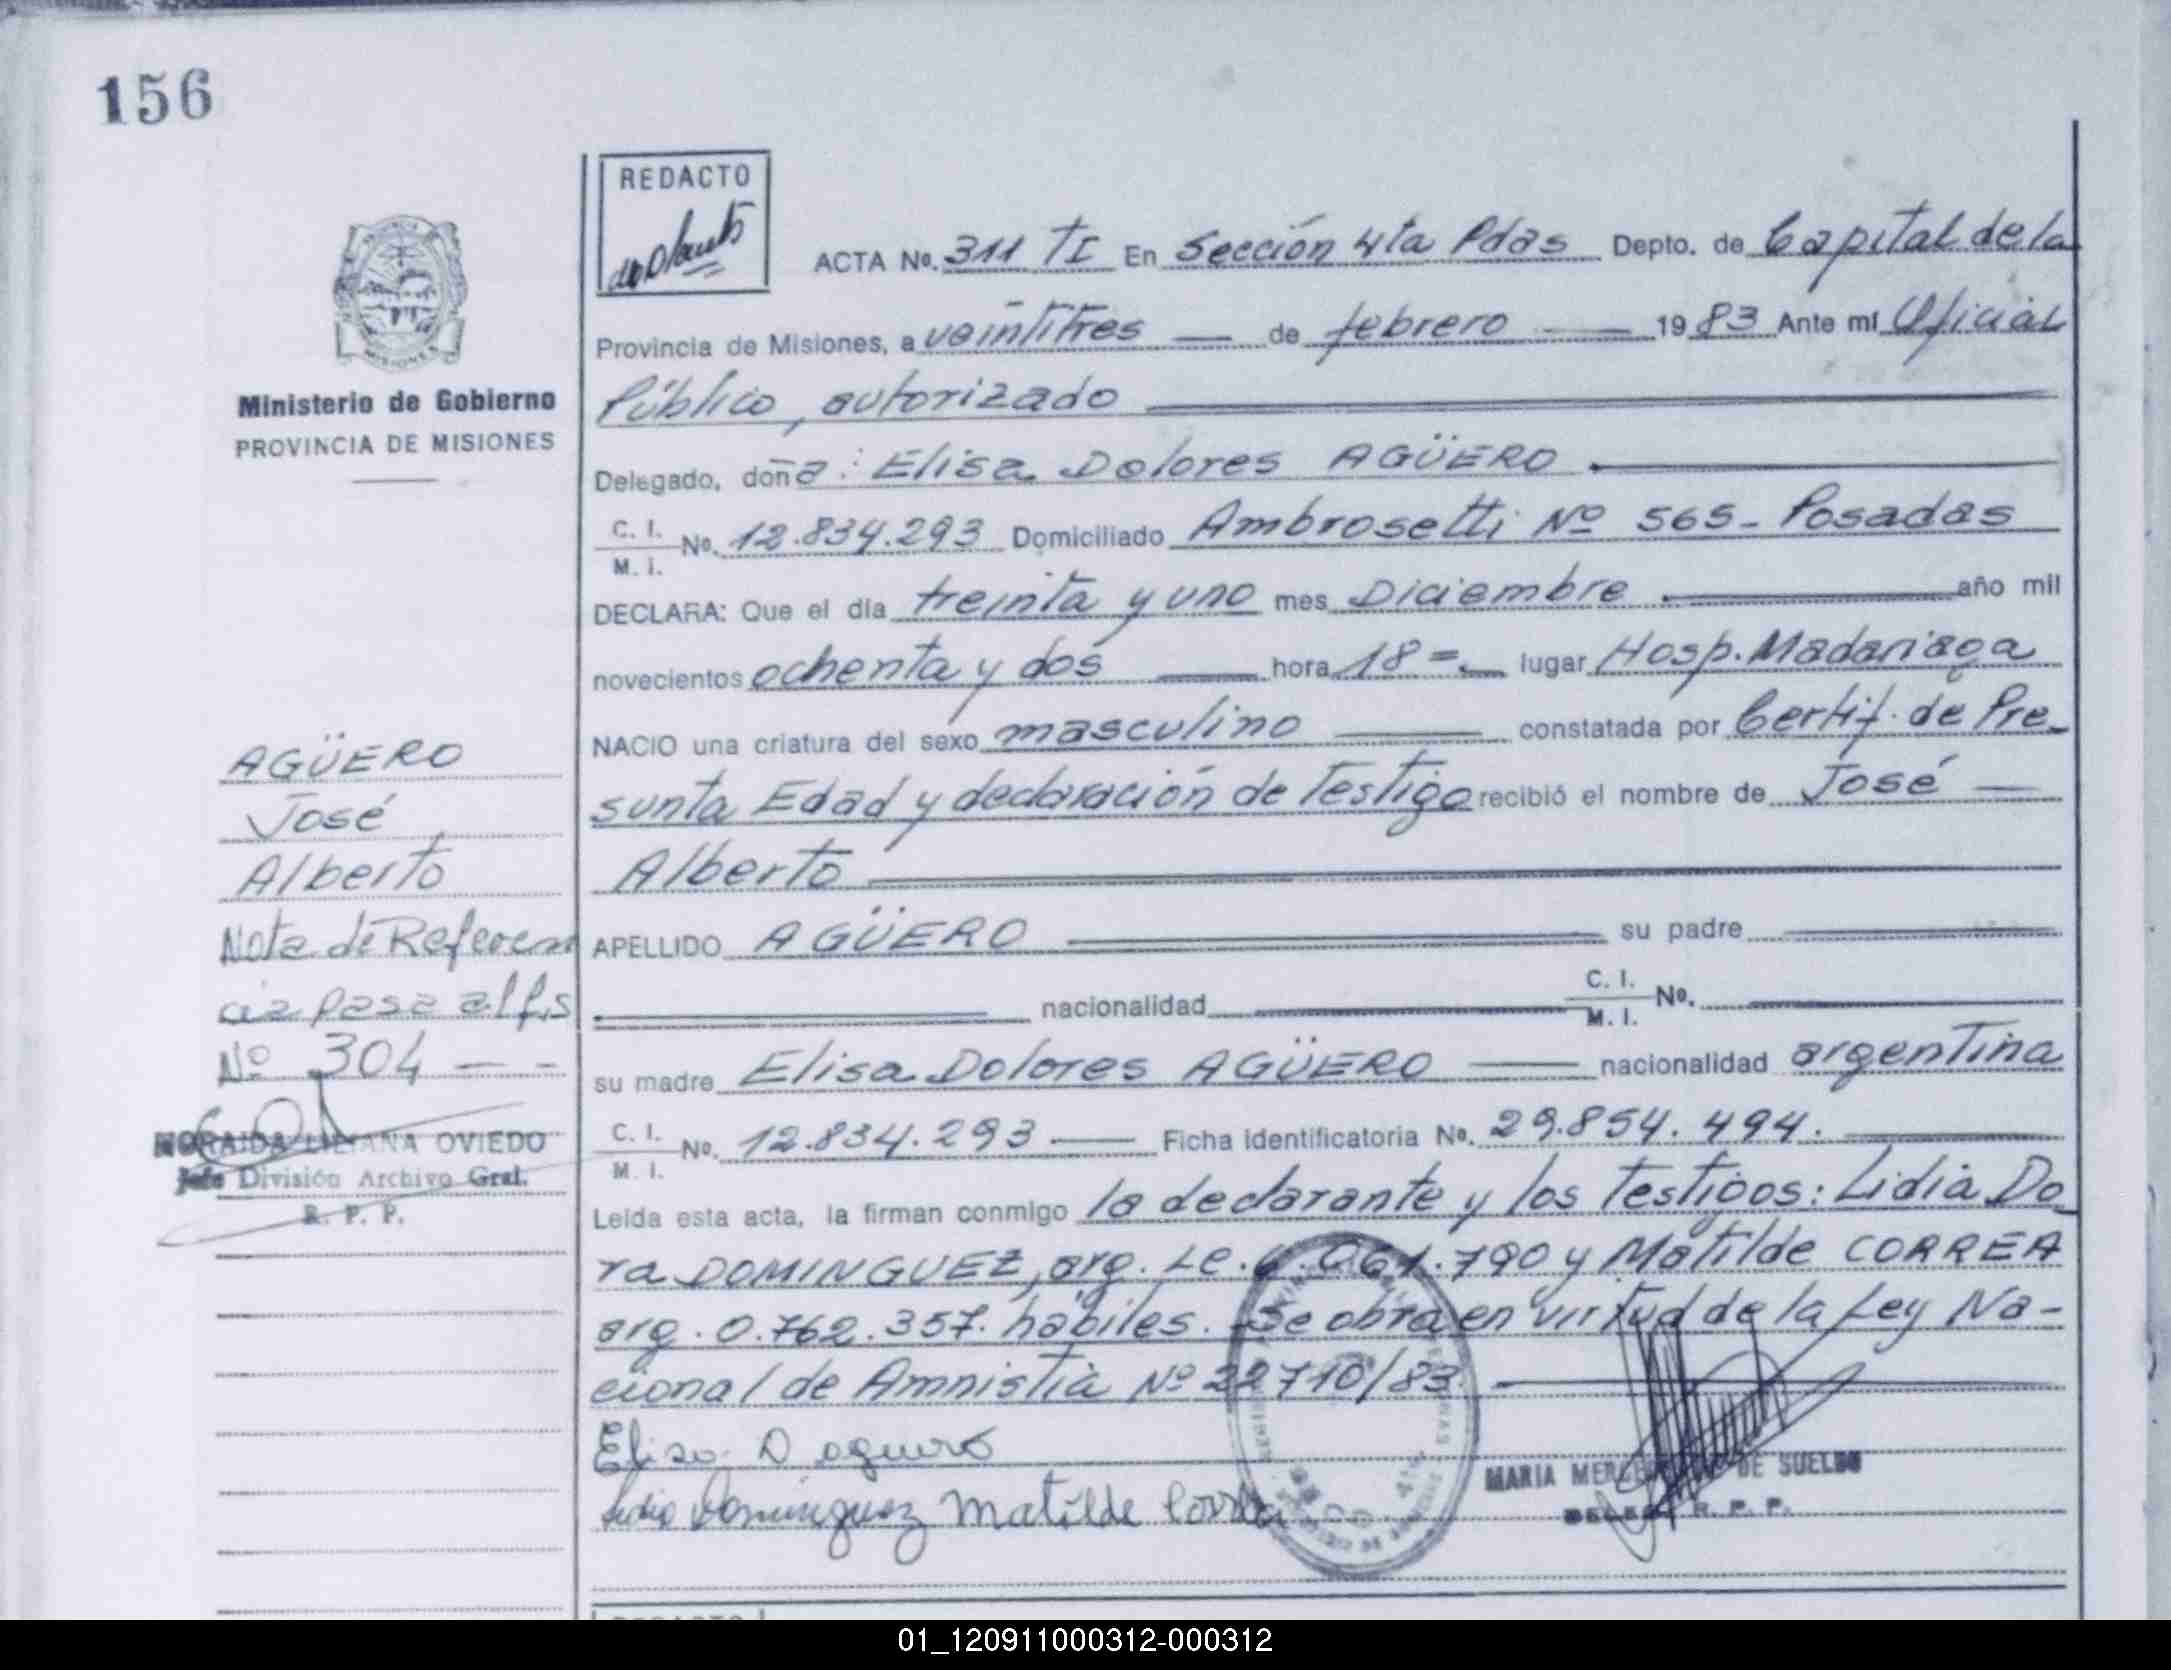 156
REDACTO
ACTA No. 311 TI En Sección 4ta Pdas Depto. de Capital de la
Provincia de Misiones, a veintitres de febrero 1983 Ante mí Oficial
Público, autorizado
Delegado, doña: Elisa Dolores AGÜERO
C. I. M. I. No. 12.834.293 Domiciliado Ambrosetti Nº 565 - Posadas
DECLARA: Que el día treinta y uno mes Diciembre año mil
novecientos ochenta y dos hora 18 lugar Hosp. Madariaga
NACIO una criatura del sexo masculino constatada por Certif. de Pre-
sunta Edad y declaración de Testigo recibió el nombre de José
Alberto
APELLIDO AGÜERO su padre
nacionalidad C. I. M. I. No.
su madre Elisa Dolores AGÜERO nacionalidad argentina
C. I. M. I. No. 12.834.293 Ficha identificatoria No. 29.854.494.
Leída esta acta, la firman conmigo la declarante y los Testigos: Lidia Do-
ra DOMINGUEZ, arg. Le. 061.790 y Matilde CORREA
arg. 0.762.357. hábiles. Se obra en virtud de la Ley Na-
cional de Amnistia Nº 22710/83
Elisa D aguero
Lidia Dominguez Matilde Correa
MARIA DE SUELDO
R. P. P.
Ministerio de Gobierno
PROVINCIA DE MISIONES
AGÜERO
José
Alberto
Nota de Referen
cia pasa al f.s
Nº 304
NORAIDA LILIANA OVIEDO
Jefe División Archivo Gral.
R. P. P.
REDACTO
01_120911000312-000312